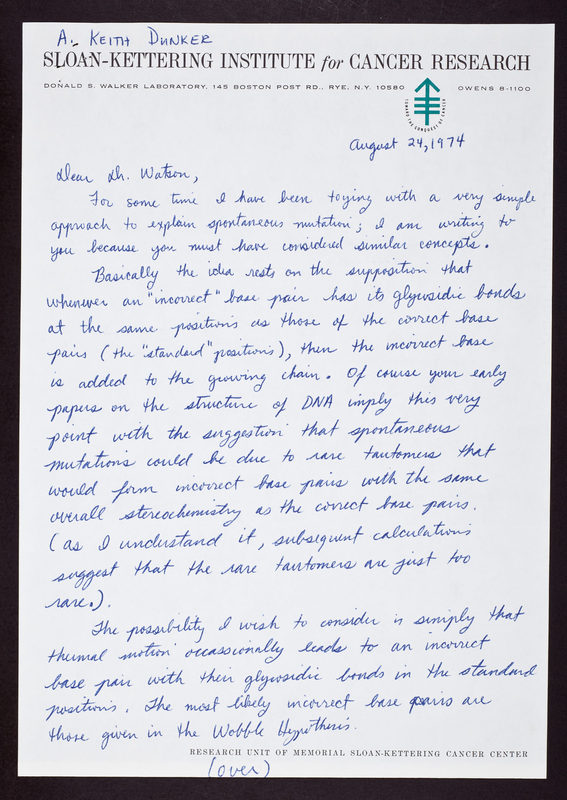 A. KEITH DUNKER
SLOAN-KETTERING INSTITUTE for CANCER RESEARCH
DONALD S. WALKER LABORATORY, 145 BOSTON POST RD., RYE, N.Y. 10580 OWENS 8-1100
TOWARD THE CONQUEST OF CANCER
August 24, 1974
Dear Dr. Watson,
For some time I have been toying with a very simple
approach to explain spontaneous mutation; I am writing to
you because you must have considered similar concepts.
Basically the idea rests on the supposition that
whenever an "incorrect" base pair has its glycosidic bonds
at the same positions as those of the correct base
pairs (the "standard" positions), then the incorrect base
is added to the growing chain. Of course your early
papers on the structure of DNA imply this very
point with the suggestion that spontaneous
mutations could be due to rare tautomers that
would form incorrect base pairs with the same
overall stereochemistry as the correct base pairs.
(as I understand it, subsequent calculations
suggest that the rare tautomers are just too
rare.).
The possibility I wish to consider is simply that
thermal motion occassionally leads to an incorrect
base pair with their glycosidic bonds in the standard
positions. The most likely incorrect base pairs are
those given in the Wobble Hypothesis.
RESEARCH UNIT OF MEMORIAL SLOAN-KETTERING CANCER CENTER
(over)